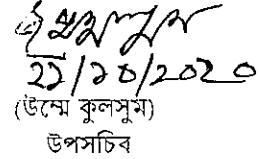 ২১/১০/২০২০
(উম্মে কুলসুম)
উপসচিব